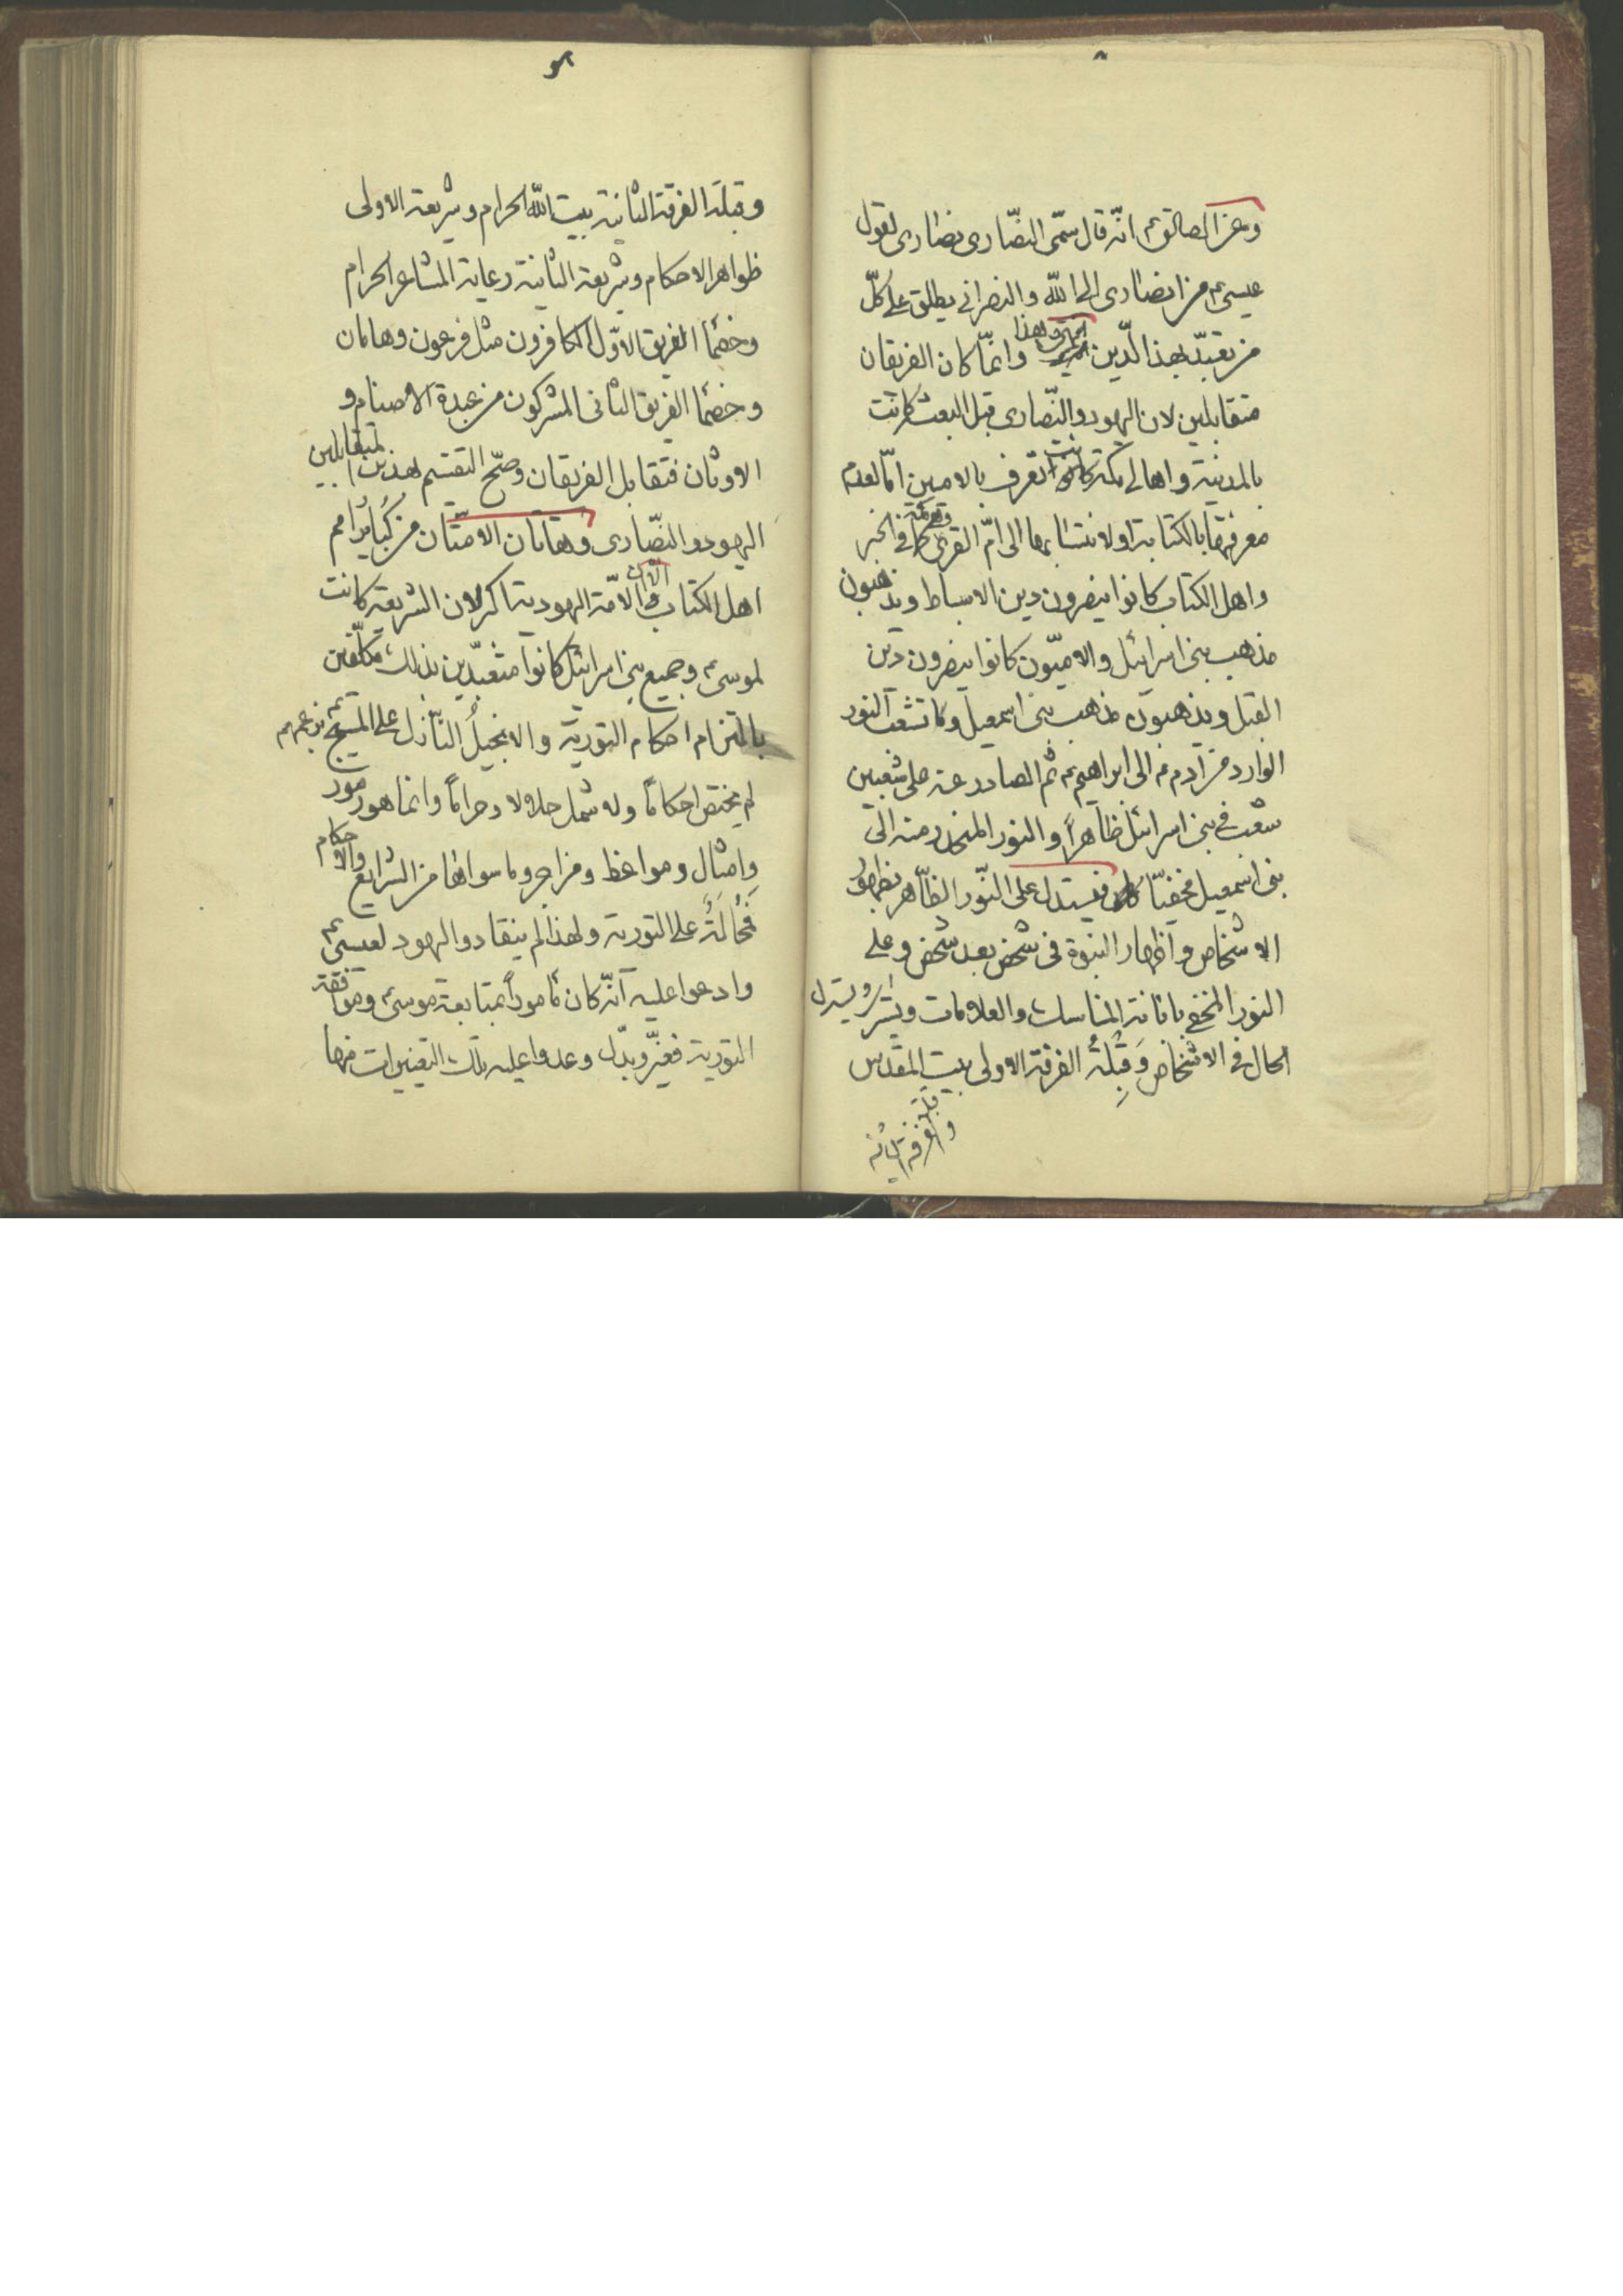 ٨
وعن الصادق ع م انّه قال سمّى النصّارى نصارى لقول
عيسى ع م من انصارى الى الله والنصرانى يطلق على كلّ
من تعبّد بهذا الدّين وانمّا كان الفريقان
متقابلين لان اليهود والنّصارى قبل البعث كانت
بالمدينة واهالى مكة كانت تعرف بالاميين امّا لعدم
معرفتها بالكتابة اولانتسابها الى امّ القرى فى الخبر
واهل الكتاب كانوا ينصرون دين الاسباط ويذهبون
مذهب بنى اسرائيل والاميّون كانوا ينصرون دين
القبل ويذهبون مذهب بنى اسمعيل ولما تشعب النور
الوارد من آدم ع م الى ابراهيم ع م ثم الصادر عنه على شعبين
شعب فى بنى اسرائيل ظاهراً والنور المنحدر منه الى
بنى اسمعيل مخفيّا فيستدل على النّور الظّاهر بظهور
الاشخاص واظهار النبوة فى شخص بعد شخص وعلى
النور المخفى بابانة المناسك والعلامات ويستر
الحال فى الاشخاص وَقِبْلَةُ الفرقة الاولى بيت المقدس
وقبلة الفرقة الثانية
٩
وقبلة الفرقة الثانية بيت الله الحرام وشريعة الاولى
ظواهر الاحكام وشريعة الثانية رعاية المشاعر الحرام
وخصمأ الفريق الاوّل الكافرون مثل فرعون وهامان
وخصمأ الفريق الثانى المشركون من عبدة الاصنام و
الاوثان فتقابل الفريقان وصّح التقسيم لهذين المتقابلين
اليهود والنصّارى وهاتان الامتّان من كُبائرُ امم
اهل الكتاب والامّة اليهودية اكبر لان الشريعة كانت
لموسى ع م وجميع بنى اسرائيل كانوا متعبّدين بذلك مكلّفين
بالتزام احكام التورية والانجيلُ النّازل على المسيح ع م بزعمهم
لم يختص احكامًا وله شمل حلالا ولا حرامًا وانما هو رموز
وامثال ومواعظ ومزاجر وما سواها من الشرايع والاحكام
مُحُالَةٌ على التورية ولهذا لم ينقادوا اليهود لعيسى ع م
وادعوا عليه انّه كان مأموراً بمتابعة موسى ع م وموافقة
التورية فغيّر وبدّل وعدوا عليه تلك التغييرات منها